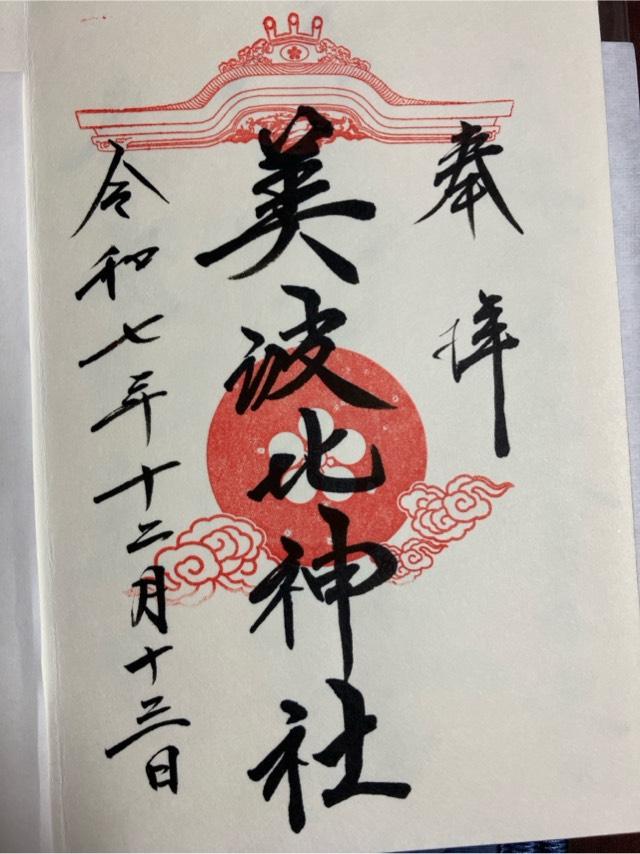 奉拝
美波比神社
令和七年十二月十三日